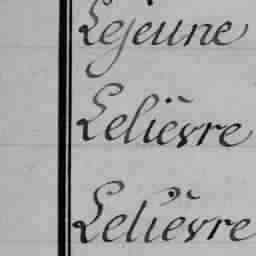 Lejeune
Lelièvre
Lelièvre